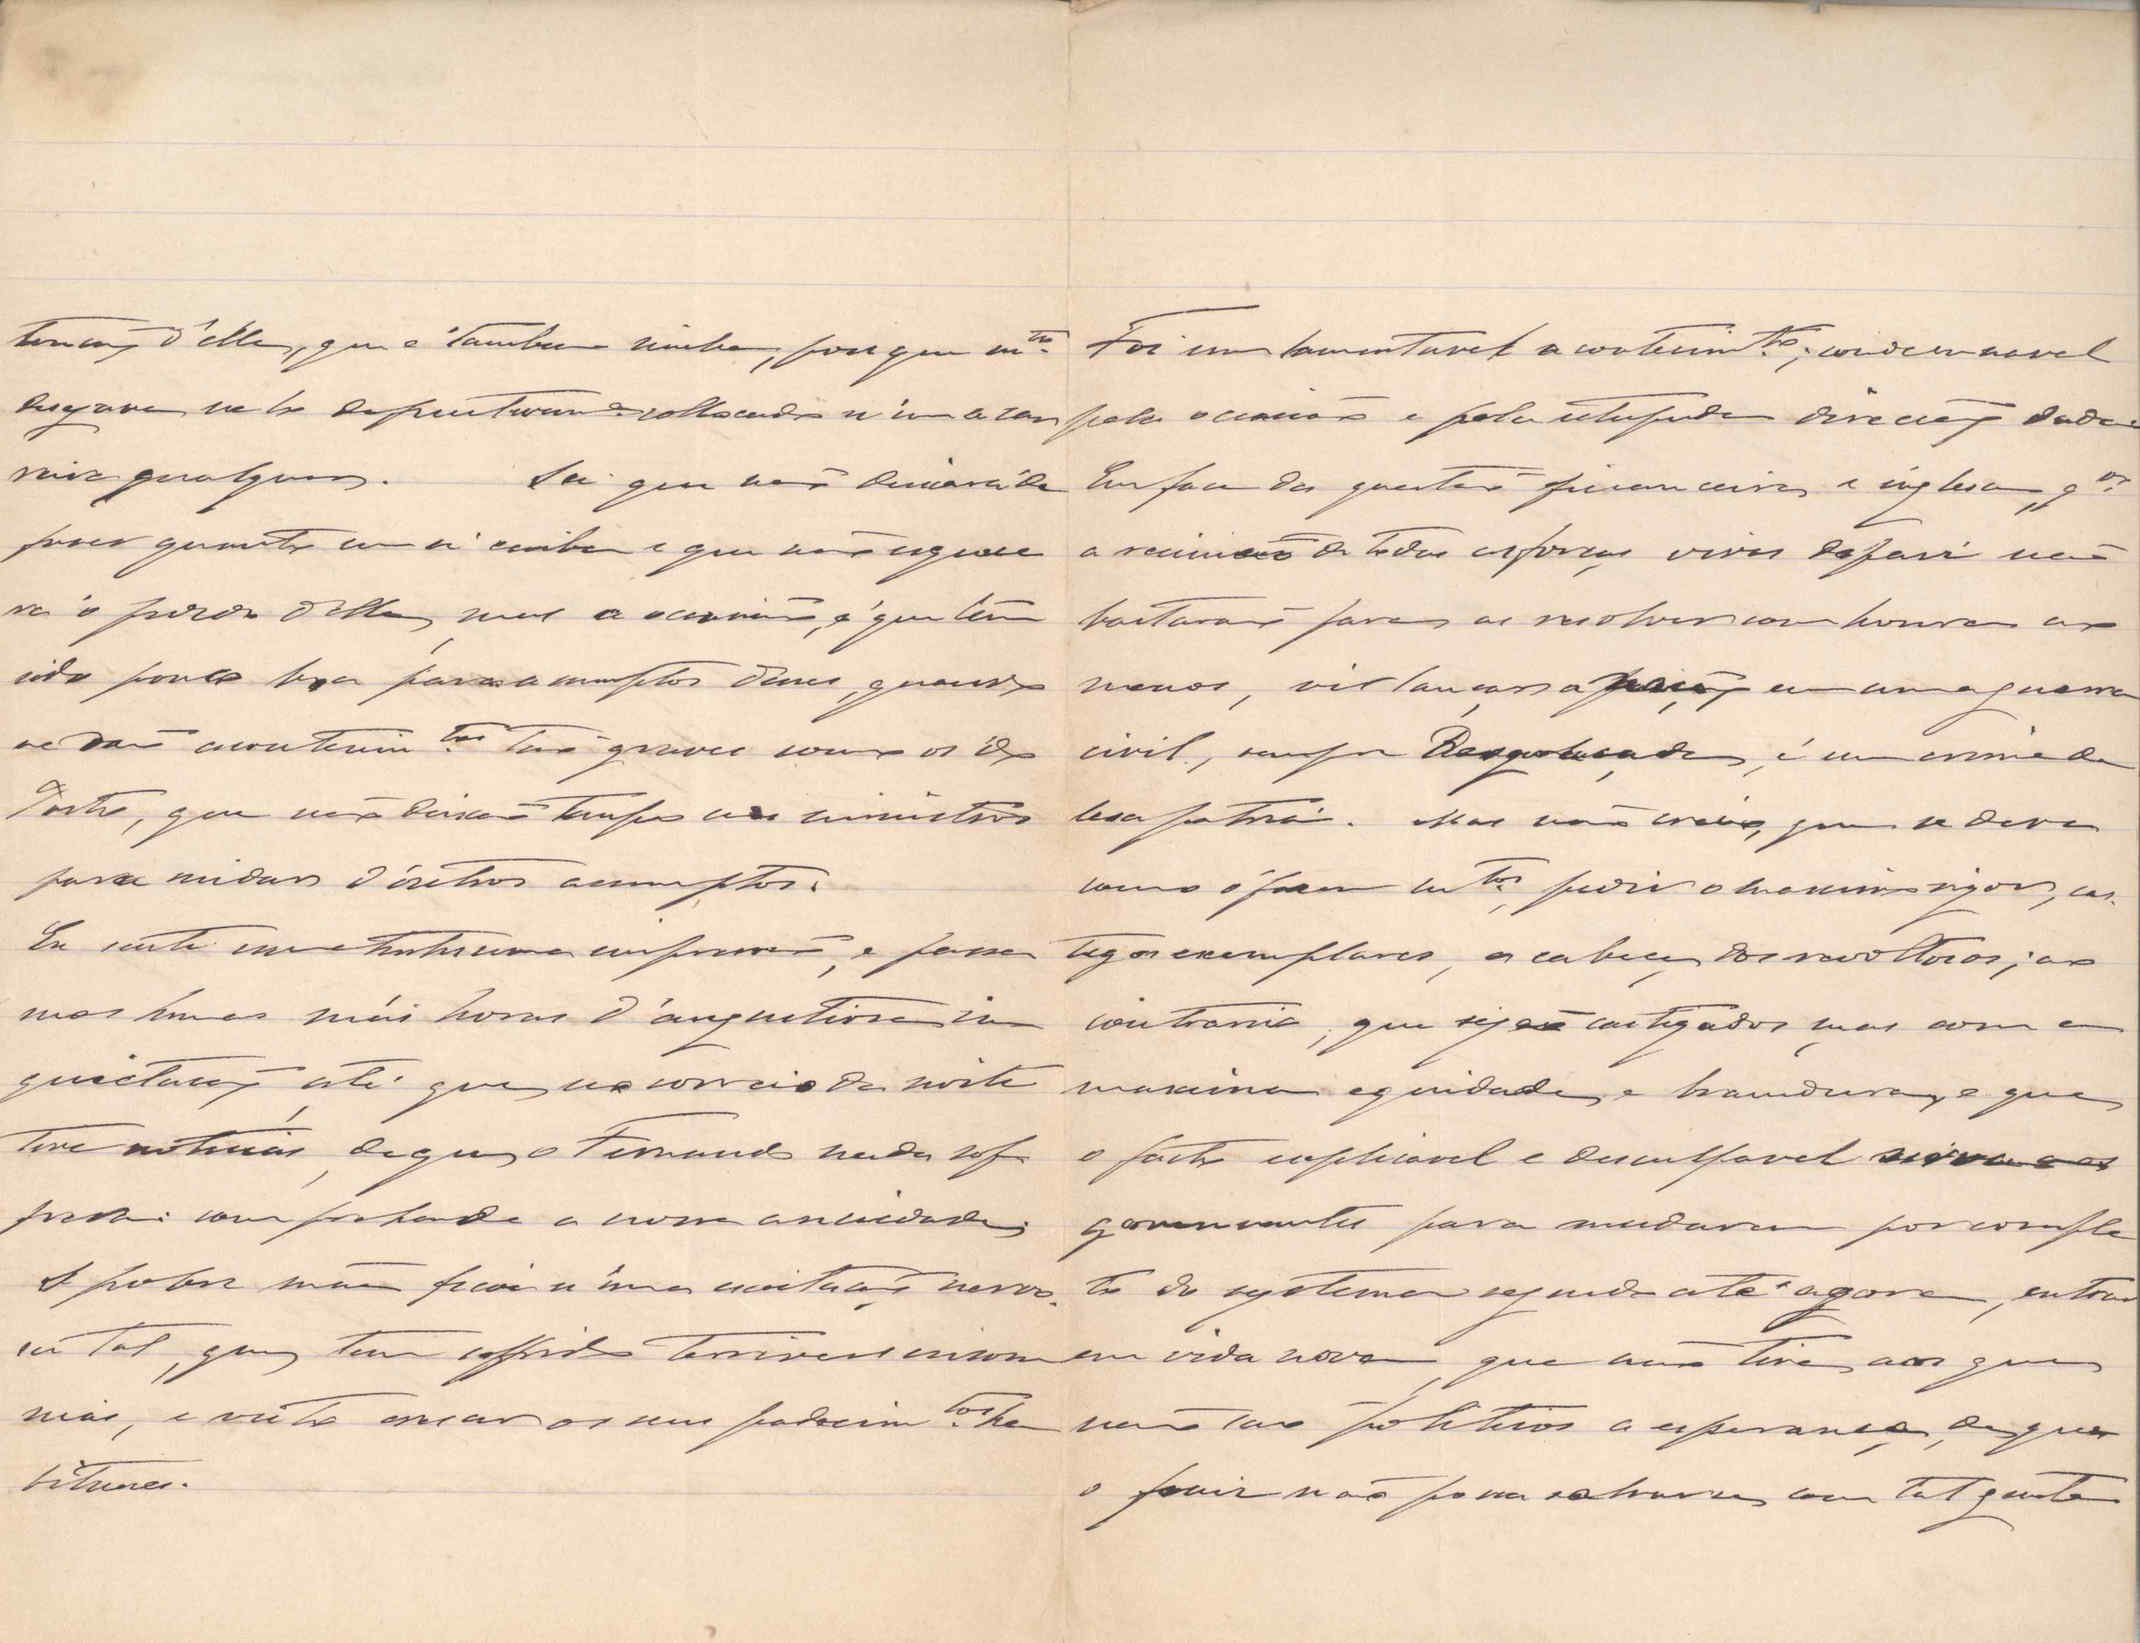 tenção d'elle, que é tambem minha, porque m.to
desejava vel-o definitivam.e collocado n'uma car
reira qualquer. Sei que não deixará de
fazer quanto em si caiba e que não esquece
rá o pedido d'elle, mas a occasião, é que tem
sido pouco boa para assumptos d'esses, quando
se dão acontecim.tos tão graves como os do
Porto, que não deixão tempo aos ministros
para cuidar d'outros assumptos.
Eu senti uma tristissima impressão, e passá
mos humas más horas d'angustiosa in
quietação até que no correio da noite
tive noticias, de que o Fernando nada sof
frera: comprehende a nossa anciedade;
A pobre mãe ficou n'uma excitação nervo
sa tal, que tem soffrido terriveis insom
nias, e visto crescer os seus padecim.tos ha
bituaes.
Foi um lamentavel acontecim.to; condemnavel
pela occasião e pela estupida direcção dada.
Em face das questões financeira e inglesa, q.do
a reunião de todas as forças vivas do paiz não
bastarão para as resolver com honra ao
menos, vir lançar a nação em uma guerra
civil, sempre desgraçada, é um crime de
lesa patria. Mas não creio, que se deva
como o fazem m.tos, pedir o maximo rigor, cas
tigos exemplares, a cabeça dos revoltosos; ao
contrario, que sejão castigados mas com a
maxima equidade, e brandura, e que
o facto explicavel e desculpavel sirva aos
governantes para mudarem por comple
to do systema seguido até agora, entrar
em vida nova, que não tire aos que
não são politicos a esperança, de que
o paiz não possa salvar-se com tal gente